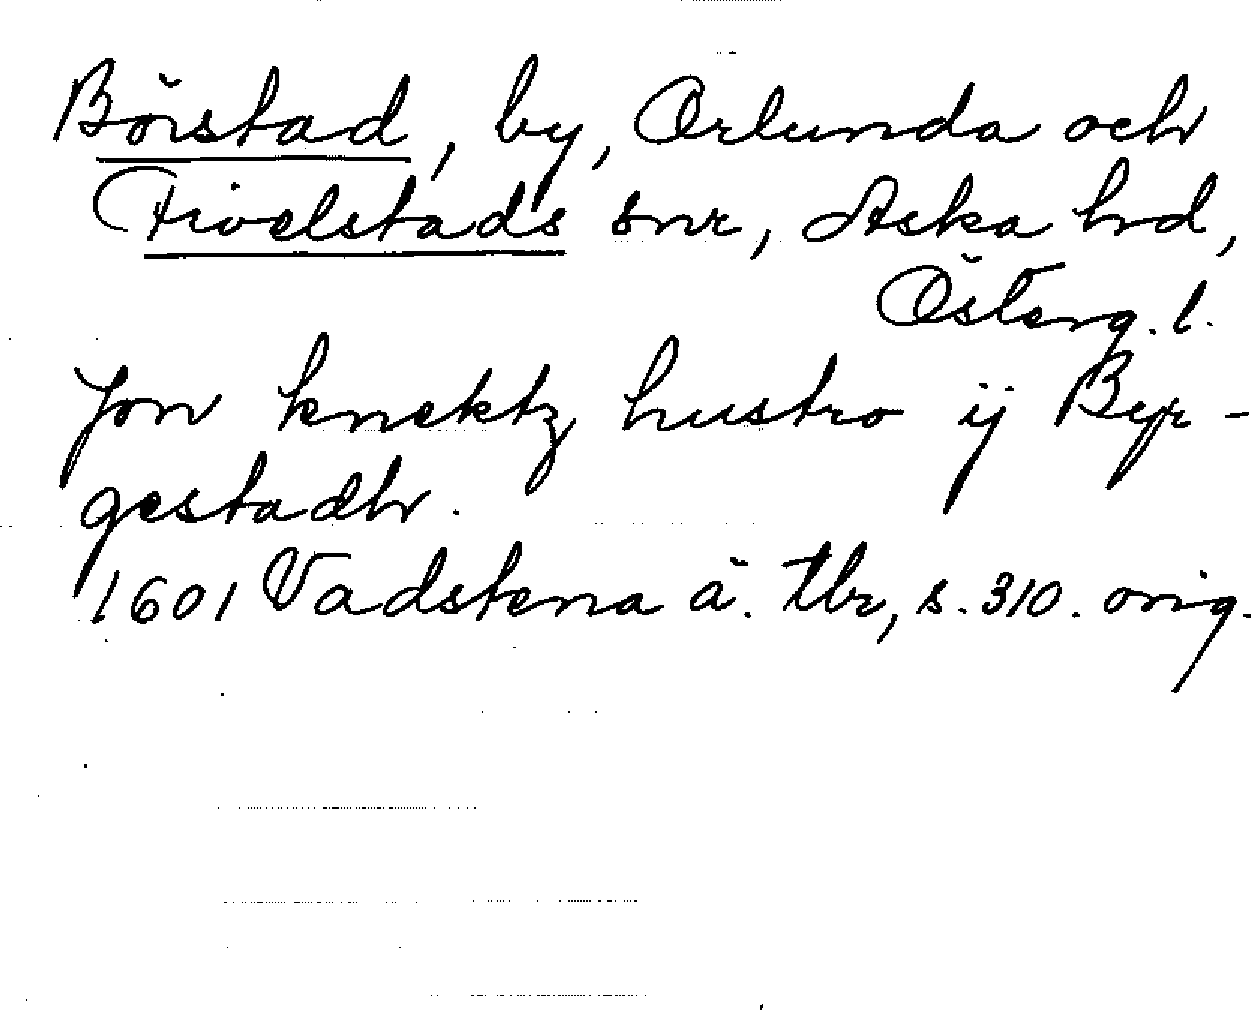 Börstad, by, Orlunda och
Fivelstads snr, Aska hrd,
Österg. l.
Jon knektz hustro ij Byr-
gestadhr.
1601 Vadstena ä. tbr, s. 310. orig.